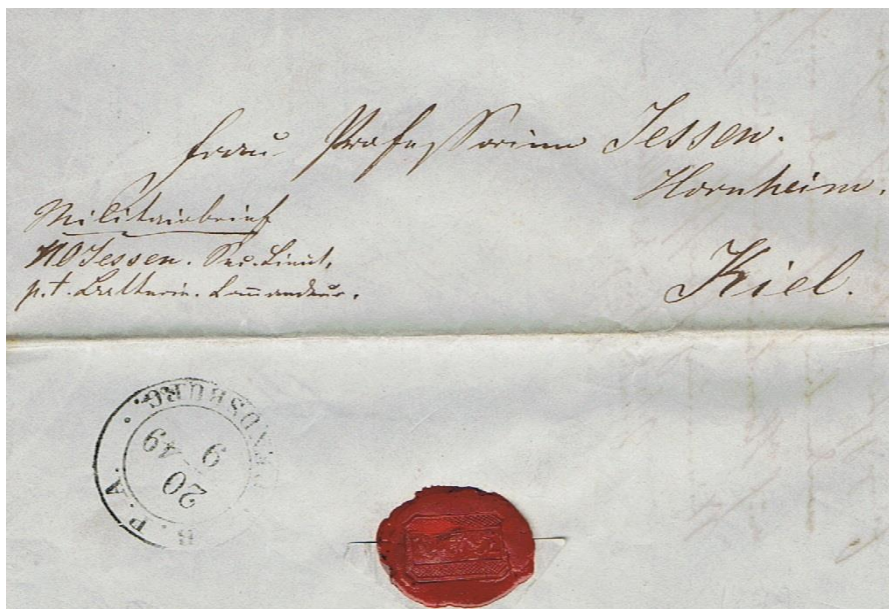 Frau Professorinn Jessen.
Hornheim.
Militairbrief
Jessen. Sec. Lieut,
p. t. Batterie. Commandeur.
Kiel.
RENDSBURG.
20 9 49
B. P. A.